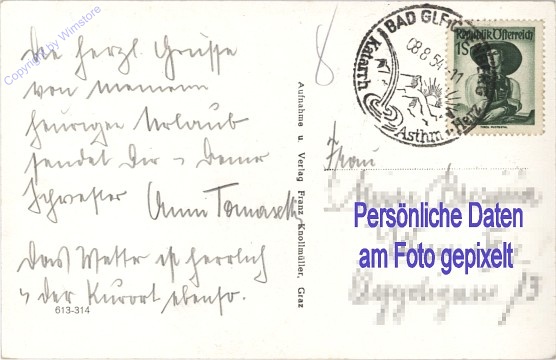 Die herzl. Grüsse
von meinem
heurigen Urlaub
sendet Dir u. Deiner
Schwester Anna
Das Wetter ist herrlich
u. der Kurort ebenso.
613-314
Copyright by Wimstore
8
Aufnahme u. Verlag Franz Knollmüller, Graz
BAD GLEI
08.8.54-11
Katarrh
Asthm
Herz
Republik Österreich
1S
Frau
Persönliche Daten
am Foto gepixelt